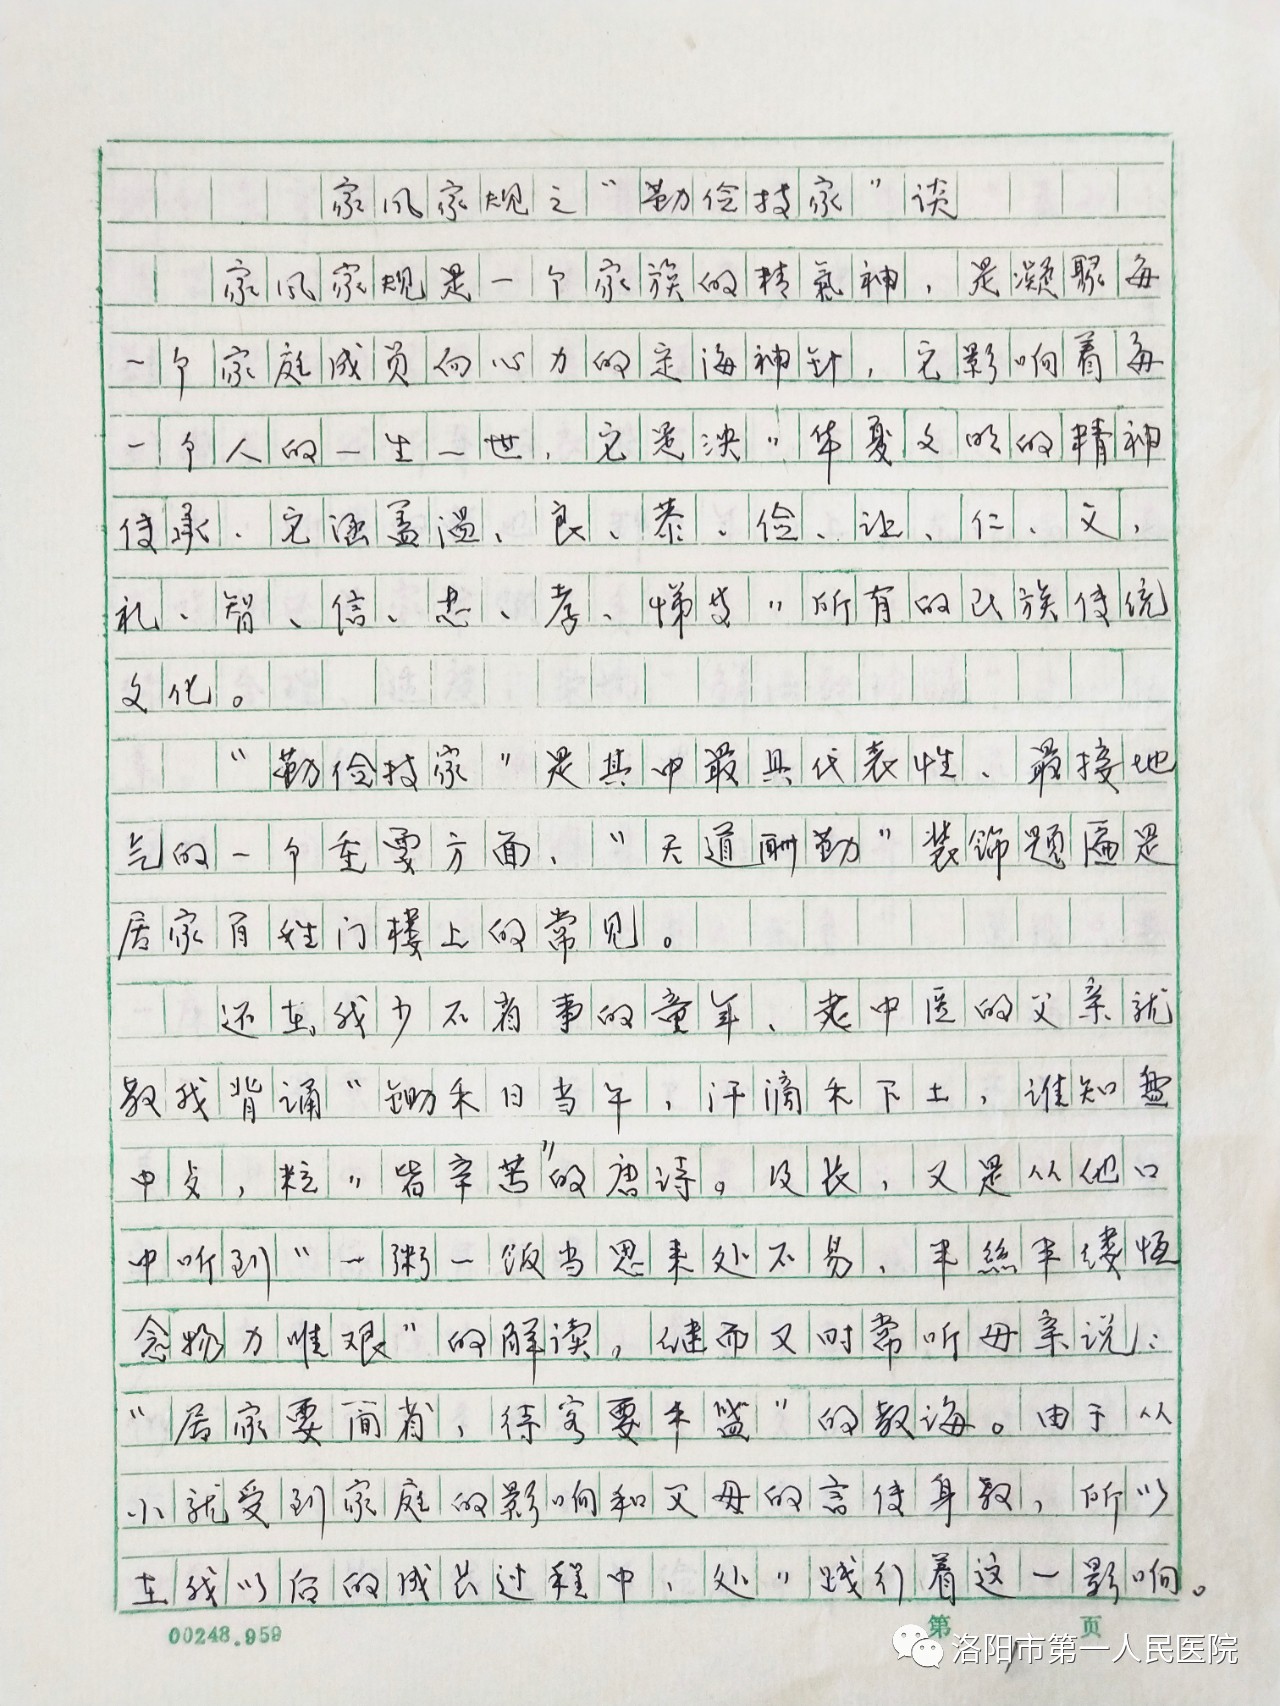 家风家规之"勤俭持家"谈
家风家规是一个家族的精氣神，是凝聚每
一个家庭成员向心力的定海神针，它影响着每
一个人的一生一世，它是泱〃华夏文明的精神
传承、它涵盖温、良、恭、俭、让、仁、文，
礼、智、信、忠、孝、悌等〃所有的民族传统
文化。
"勤俭持家"是其中最具代表性、最接地
气的一个重要方面、"天道酬勤"装饰题匾是
居家百姓门楼上的常见。
还在我少不省事的童年、老中医的父亲就
教我背诵"锄禾日当午，汗滴禾下土，谁知盘
中餐，粒〃皆辛苦"的唐诗。及长，又是从他口
中听到"一粥一饭当思来处不易、半絲半缕恒
念物力唯艰"的解读，继而又时常听母亲说：
"居家要简省，待客要丰盛"的教诲。由于从
小就受到家庭的影响和父母的言传身教，所以
在我以后的成长过程中、处〃践行着这一影响。
00248.959
第 页
1
洛阳市第一人民医院